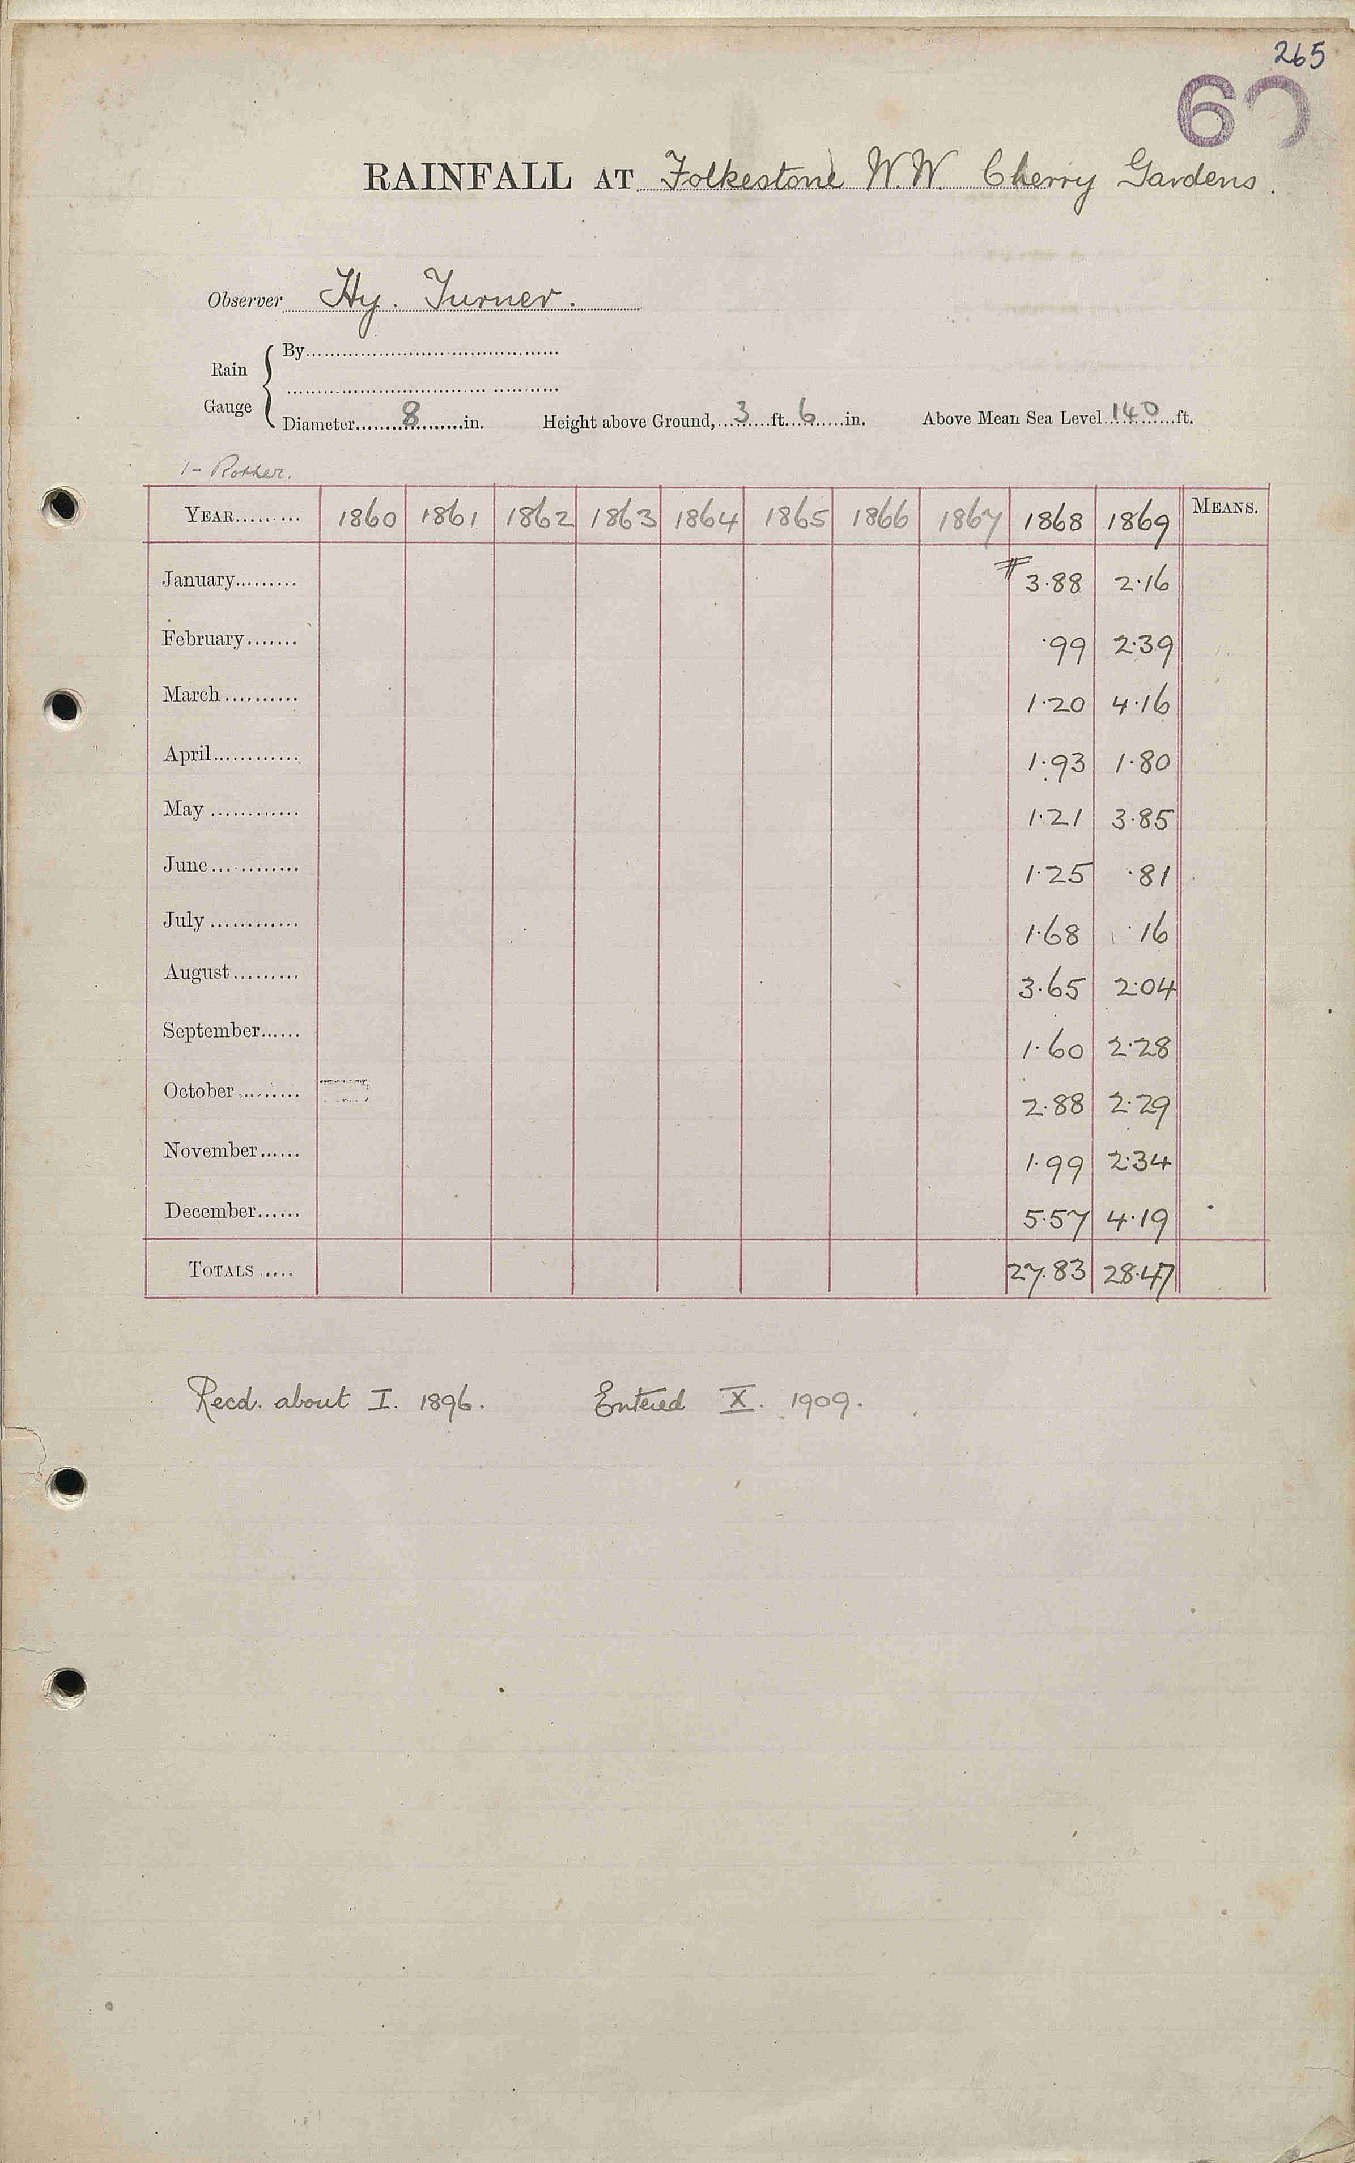 265
60
RAINFALL AT Folkestone W.W. Cherry Gardens.
Observer Hy. Turner.
Rain Gauge
By
Diameter 8 in. Height above Ground, 3 ft. 6 in. Above Mean Sea Level 140 ft.
1- Rother.
YEAR 1860 1861 1862 1863 1864 1865 1866 1867 1868 1869 MEANS.
January 3.88 2.16
February .99 2.39
March 1.20 4.16
April 1.93 1.80
May 1.21 3.85
June 1.25 .81
July 1.68 .16
August 3.65 2.04
September 1.60 2.28
October 2.88 2.29
November 1.99 2.34
December 5.57 4.19
TOTALS 27.83 28.47
Recd. about I. 1896. Entered X. 1909.